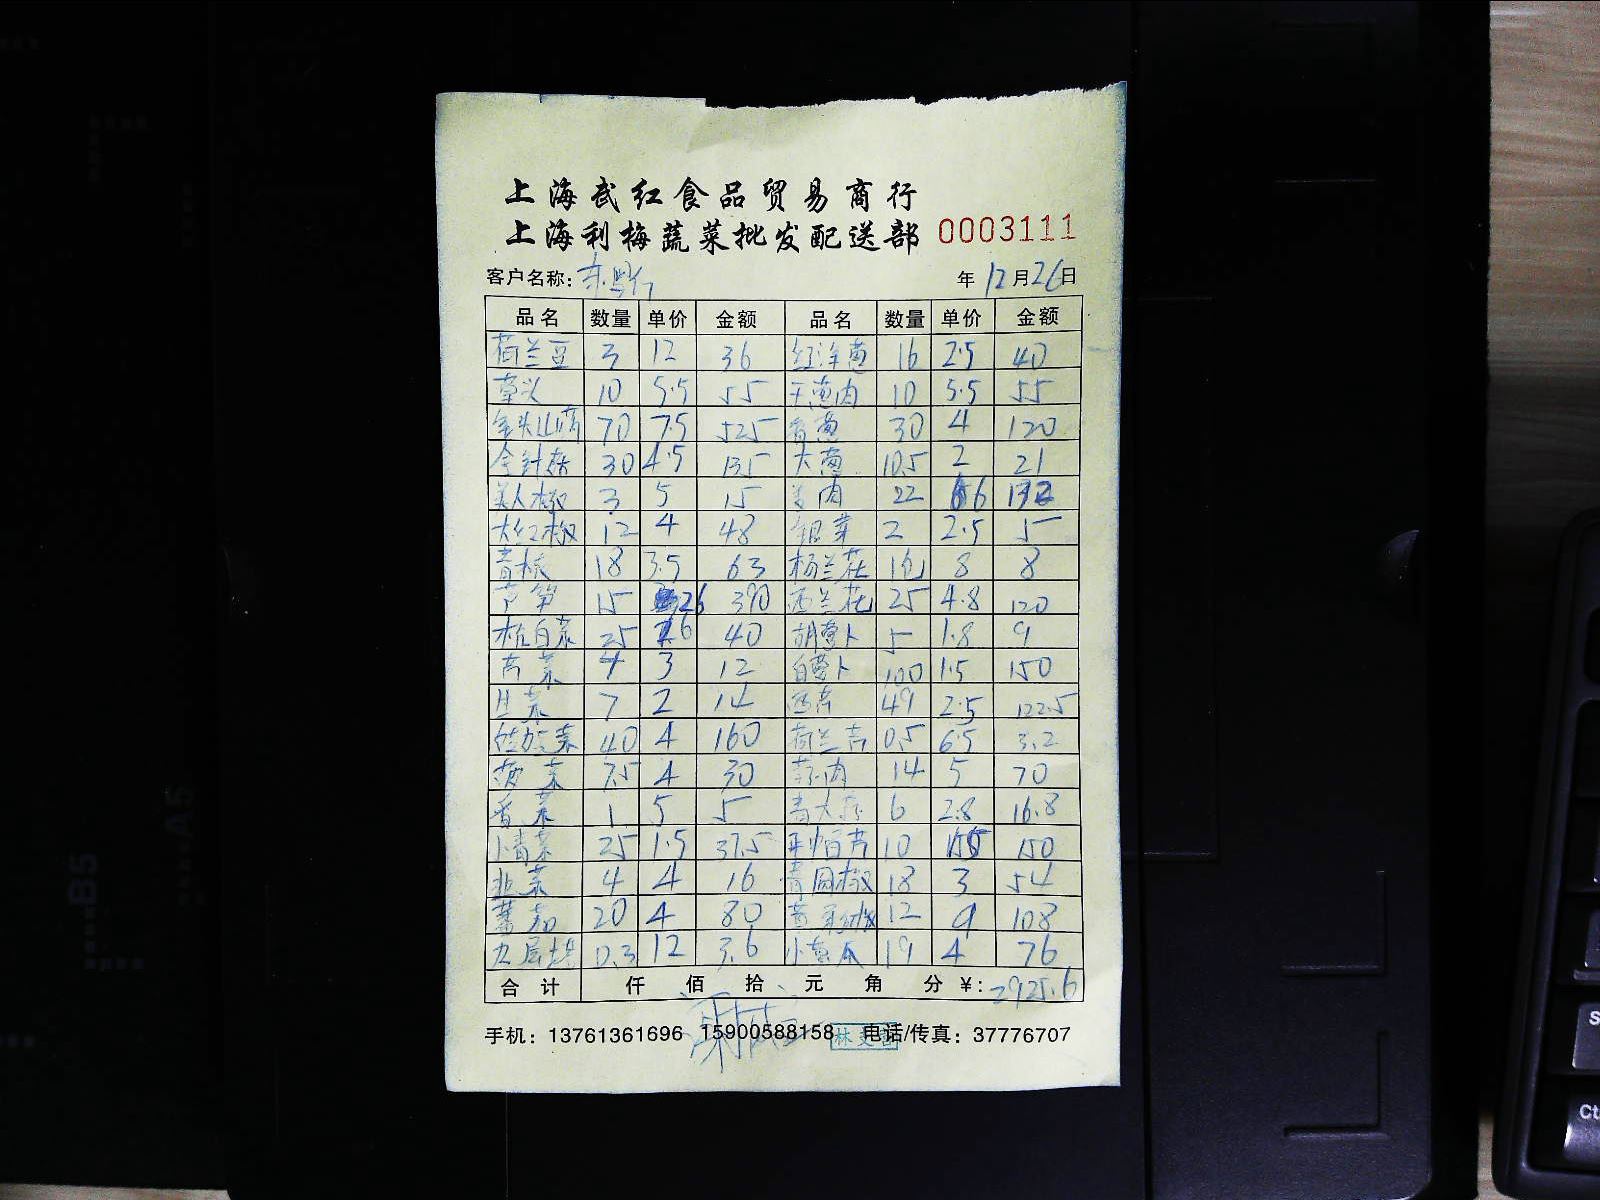 上海武红食品贸易商行
上海利梅蔬菜批发配送部 0003111
客户名称: 年 12 月 26 日
品名 数量 单价 金额 品名 数量 单价 金额
荷兰豆 3 12 36 红洋葱 16 2.5 40
草头 10 5.5 55 干葱肉 10 5.5 55
70 7.5 525 香葱 30 4 120
金针菇 30 4.5 135 大葱 10.5 2 21
美人椒 3 5 15 肉 22 6 132
大红椒 12 4 48 银芽 2 2.5 5
青椒 18 3.5 63 8 8
芦笋 15 26 390 西兰花 25 4.8 120
杭白菜 25 1.6 40 胡萝卜 5 1.8 9
芹菜 4 3 12 白萝卜 100 1.5 150
生菜 7 2 14 西芹 49 2.5 122.5
40 4 160 荷兰芹 0.5 6.5 3.2
菠菜 7.5 4 30 14 5 70
香菜 1 5 5 6 2.8 16.8
小青菜 25 1.5 37.5 10 15 150
韭菜 4 4 16 青圆椒 18 3 54
蕃茄 20 4 80 黄彩椒 12 9 108
九层塔 0.3 12 3.6 小黄瓜 19 4 76
合计 仟 佰 拾 元 角 分 ¥: 2925.6
手机: 13761361696 15900588158 电话/传真: 37776707